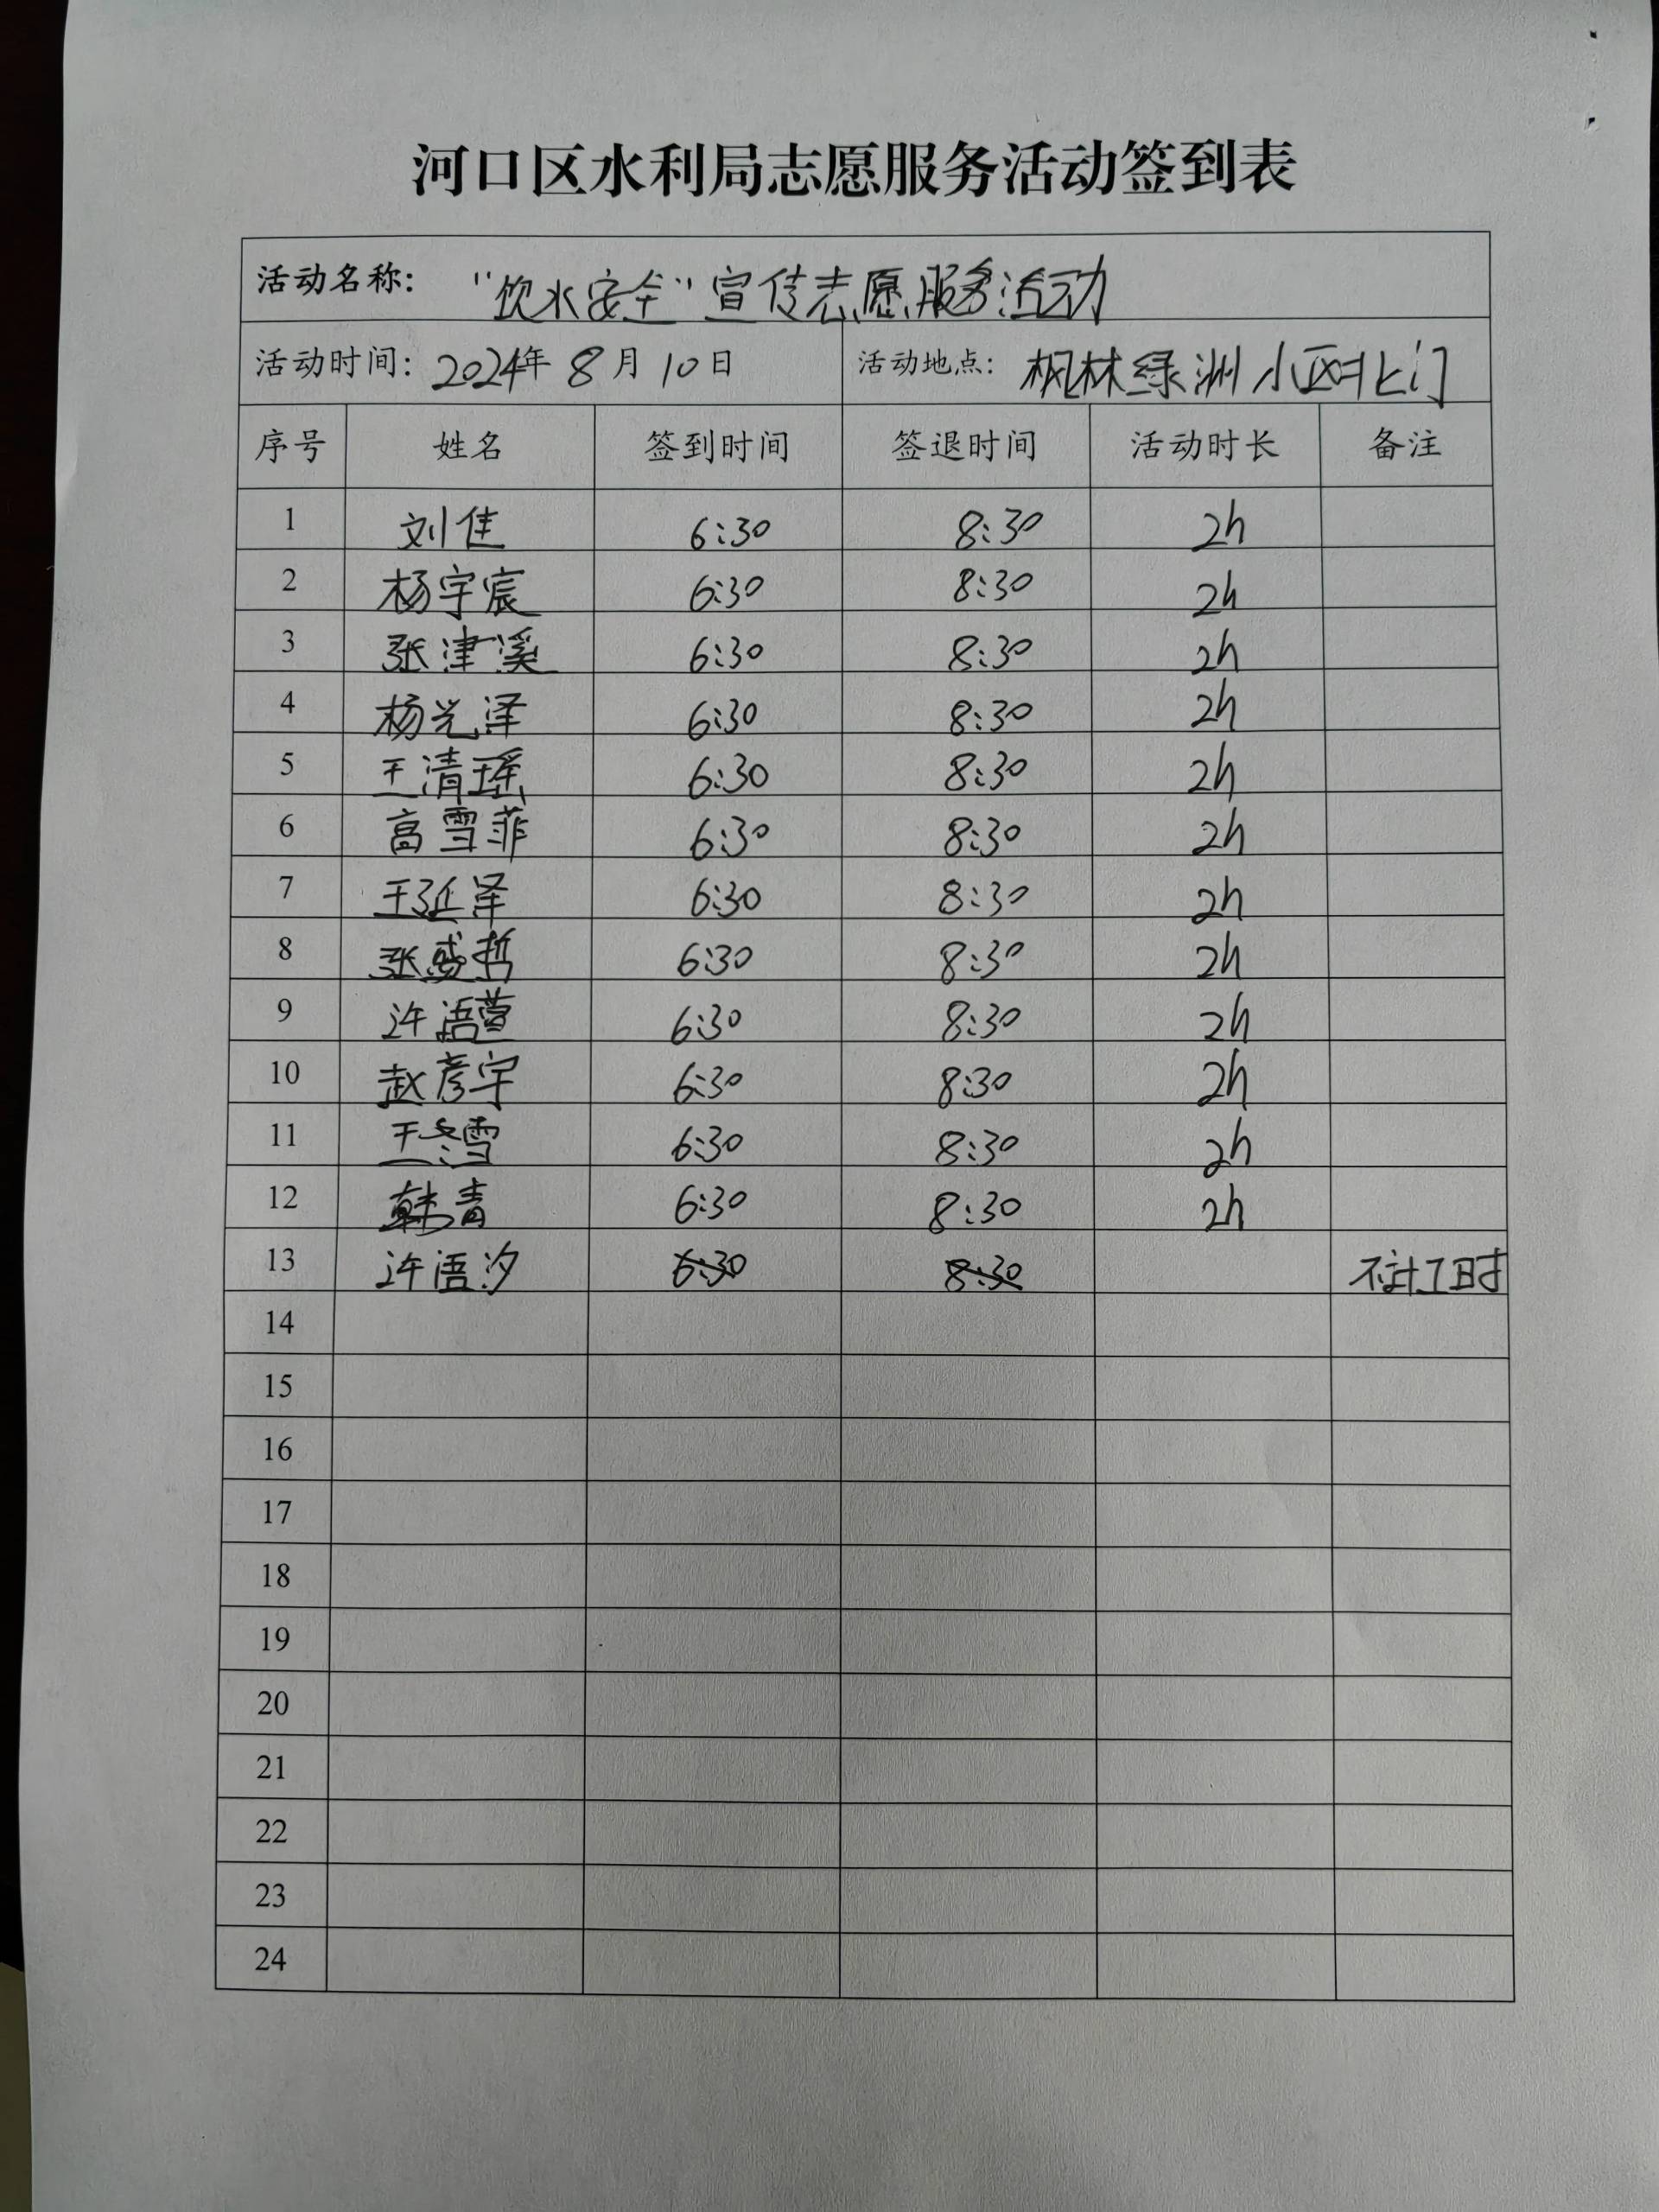 河口区水利局志愿服务活动签到表
活动名称: “饮水安全”宣传志愿服务活动
活动时间: 2024年 8月 10日 活动地点: 枫林绿洲小区北门
序号 姓名 签到时间 签退时间 活动时长 备注
1 刘佳 6:30 8:30 2h
2 杨宇宸 6:30 8:30 2h
3 张津溪 6:30 8:30 2h
4 杨光泽 6:30 8:30 2h
5 王清瑶 6:30 8:30 2h
6 高雪菲 6:30 8:30 2h
7 王延泽 6:30 8:30 2h
8 张盛哲 6:30 8:30 2h
9 许语萱 6:30 8:30 2h
10 赵彦宇 6:30 8:30 2h
11 王冬雪 6:30 8:30 2h
12 韩青 6:30 8:30 2h
13 许语汐 6:30 8:30 不计工时
14
15
16
17
18
19
20
21
22
23
24